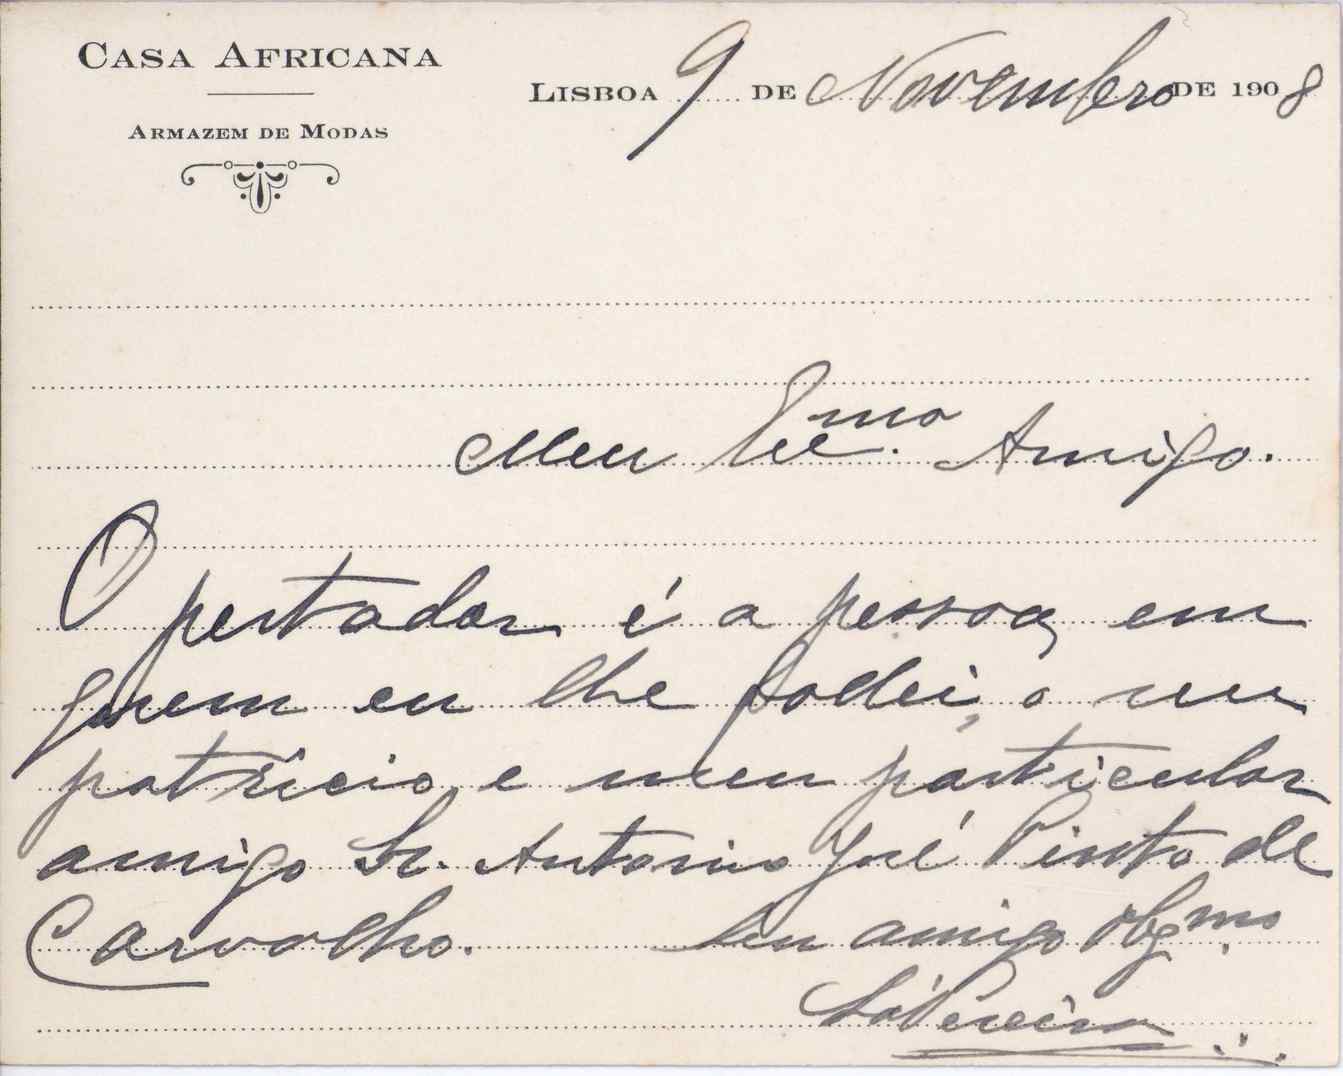 CASA AFRICANA
ARMAZEM DE MODAS
LISBOA 9 DE Novembro DE 1908
Meu Exmo. Amigo.
O portador é a pessoa em
quem eu lhe fallei, o seu
patricio e meu particular
amigo Sr. Antonio José Pinto de
Carvalho. Seu amigo obgmo.
Sá Pereira